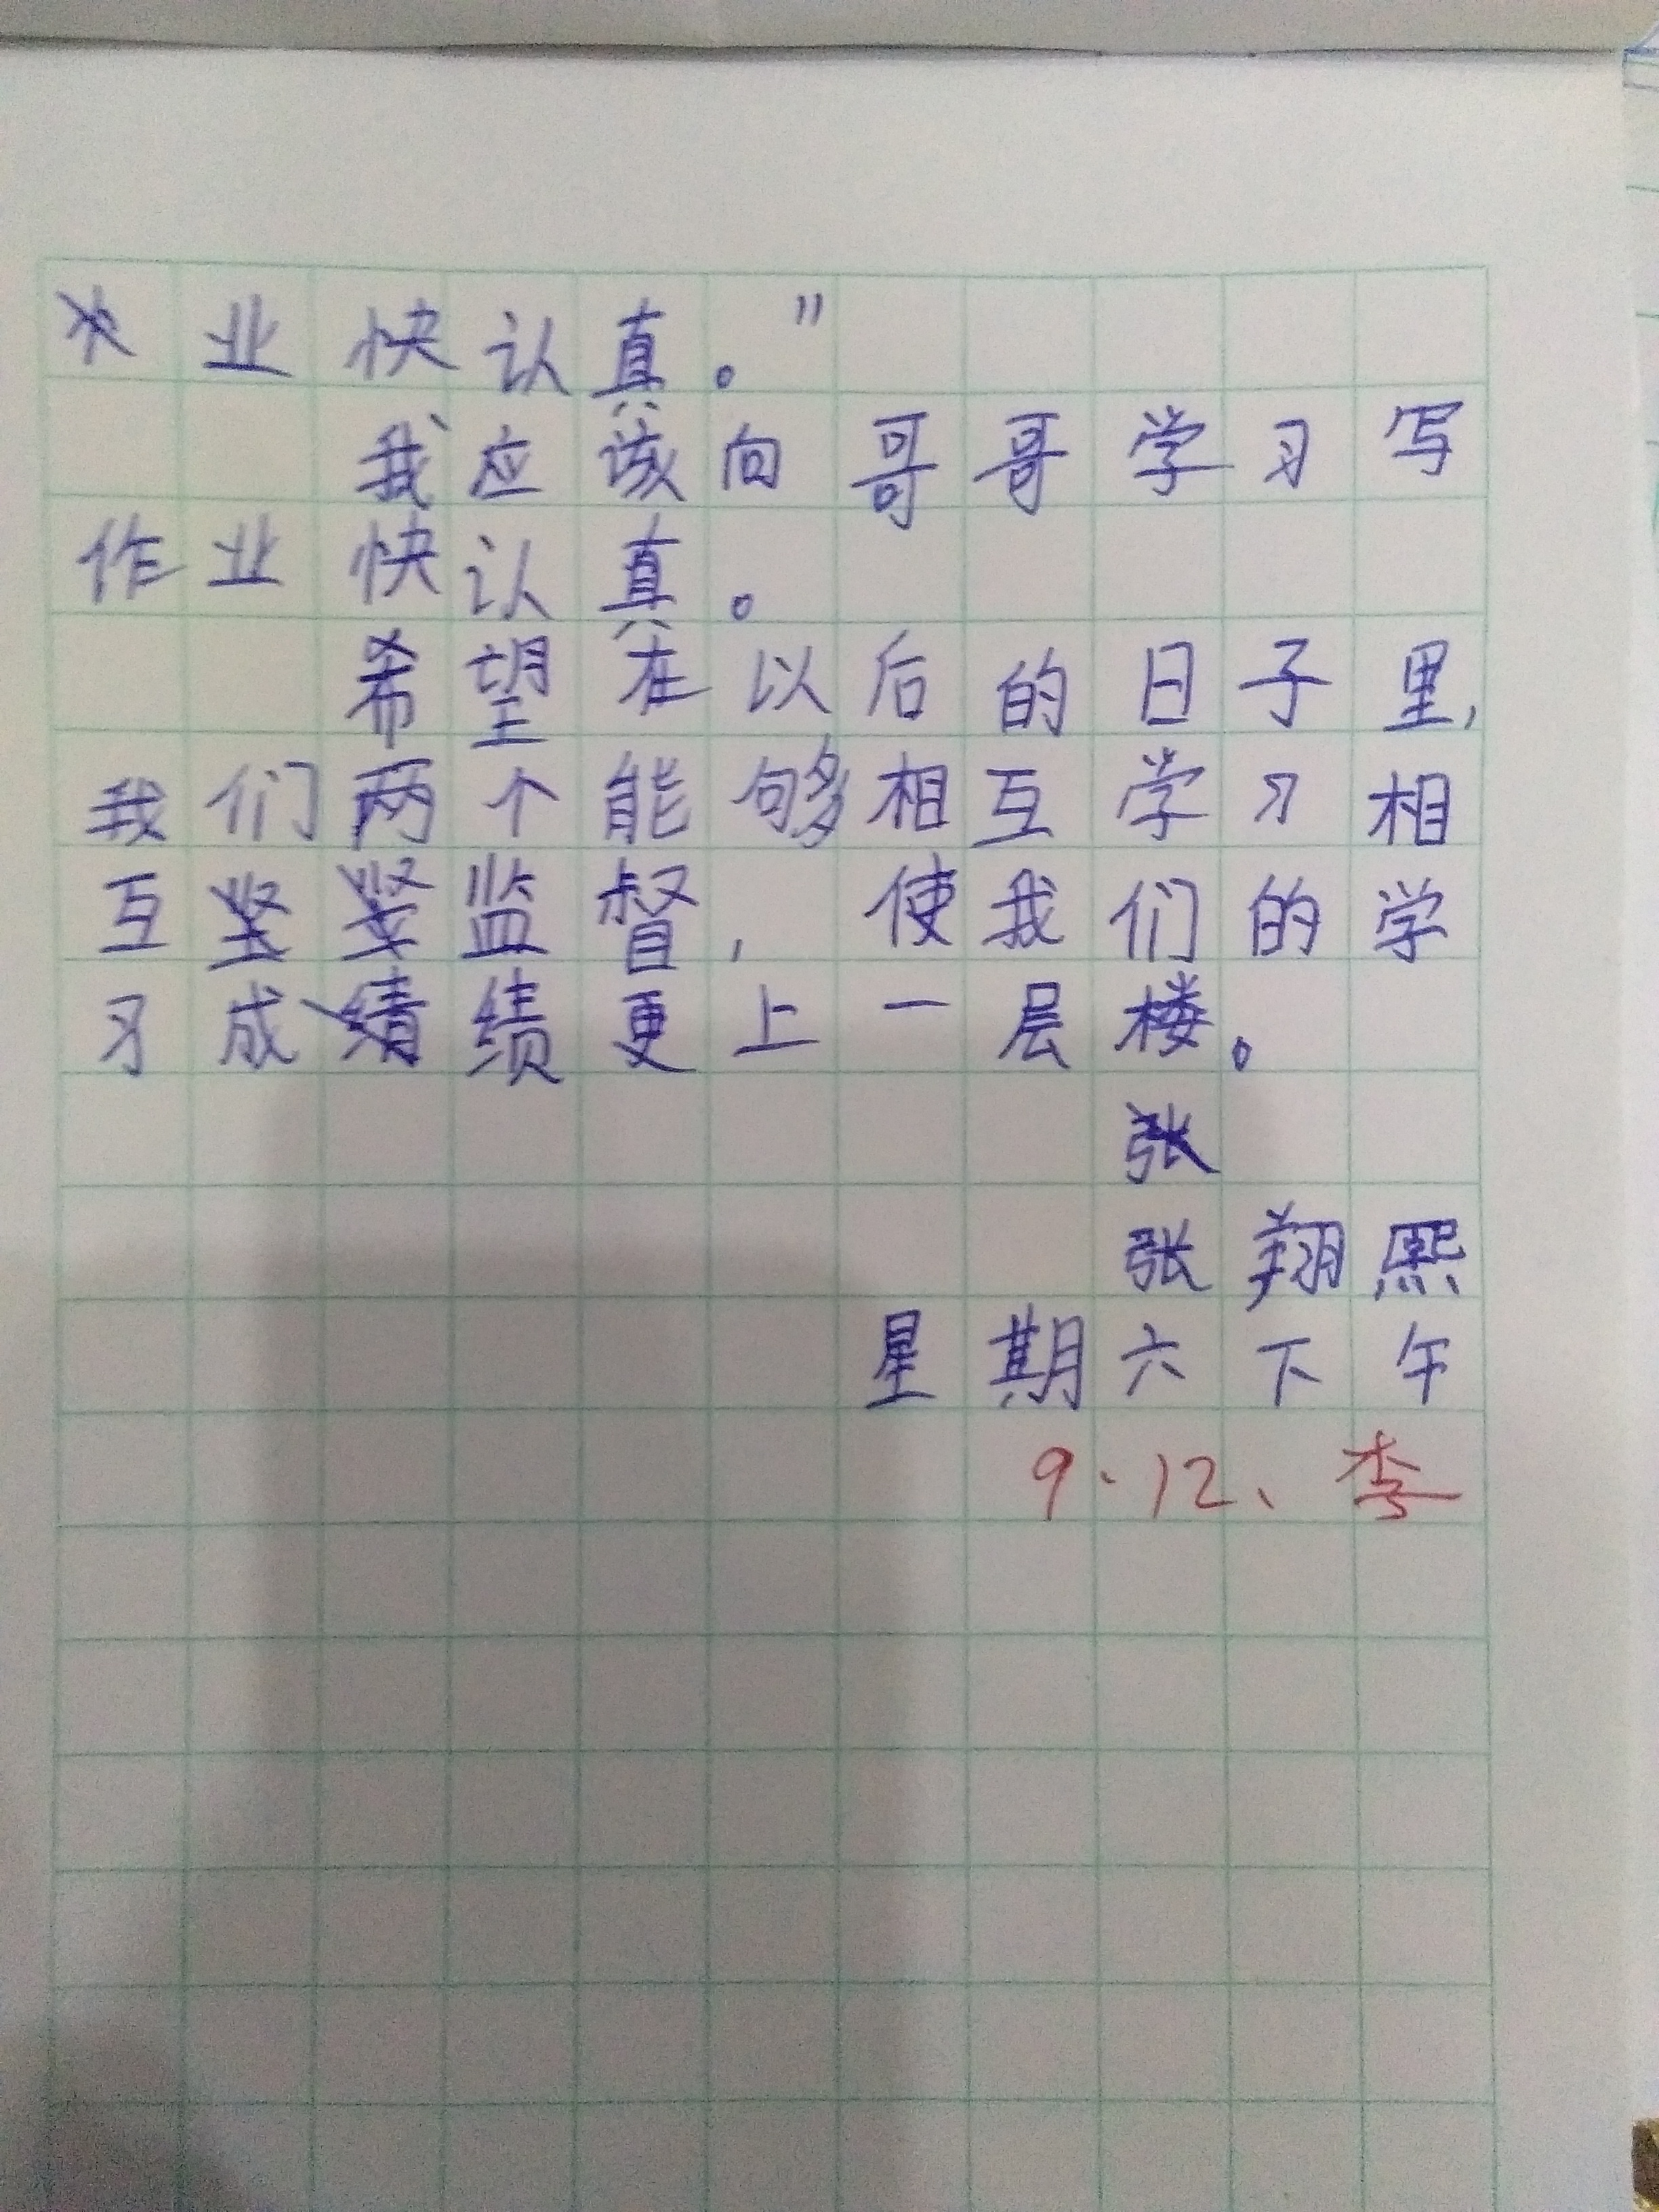 业快认真。”
我应该向哥哥学习写
作业快认真。
希望在以后的日子里,
我们两个能够相互学习相
互监督,使我们的学
习成绩更上一层楼。
张
张翔熙
星期六下午
9.12、李